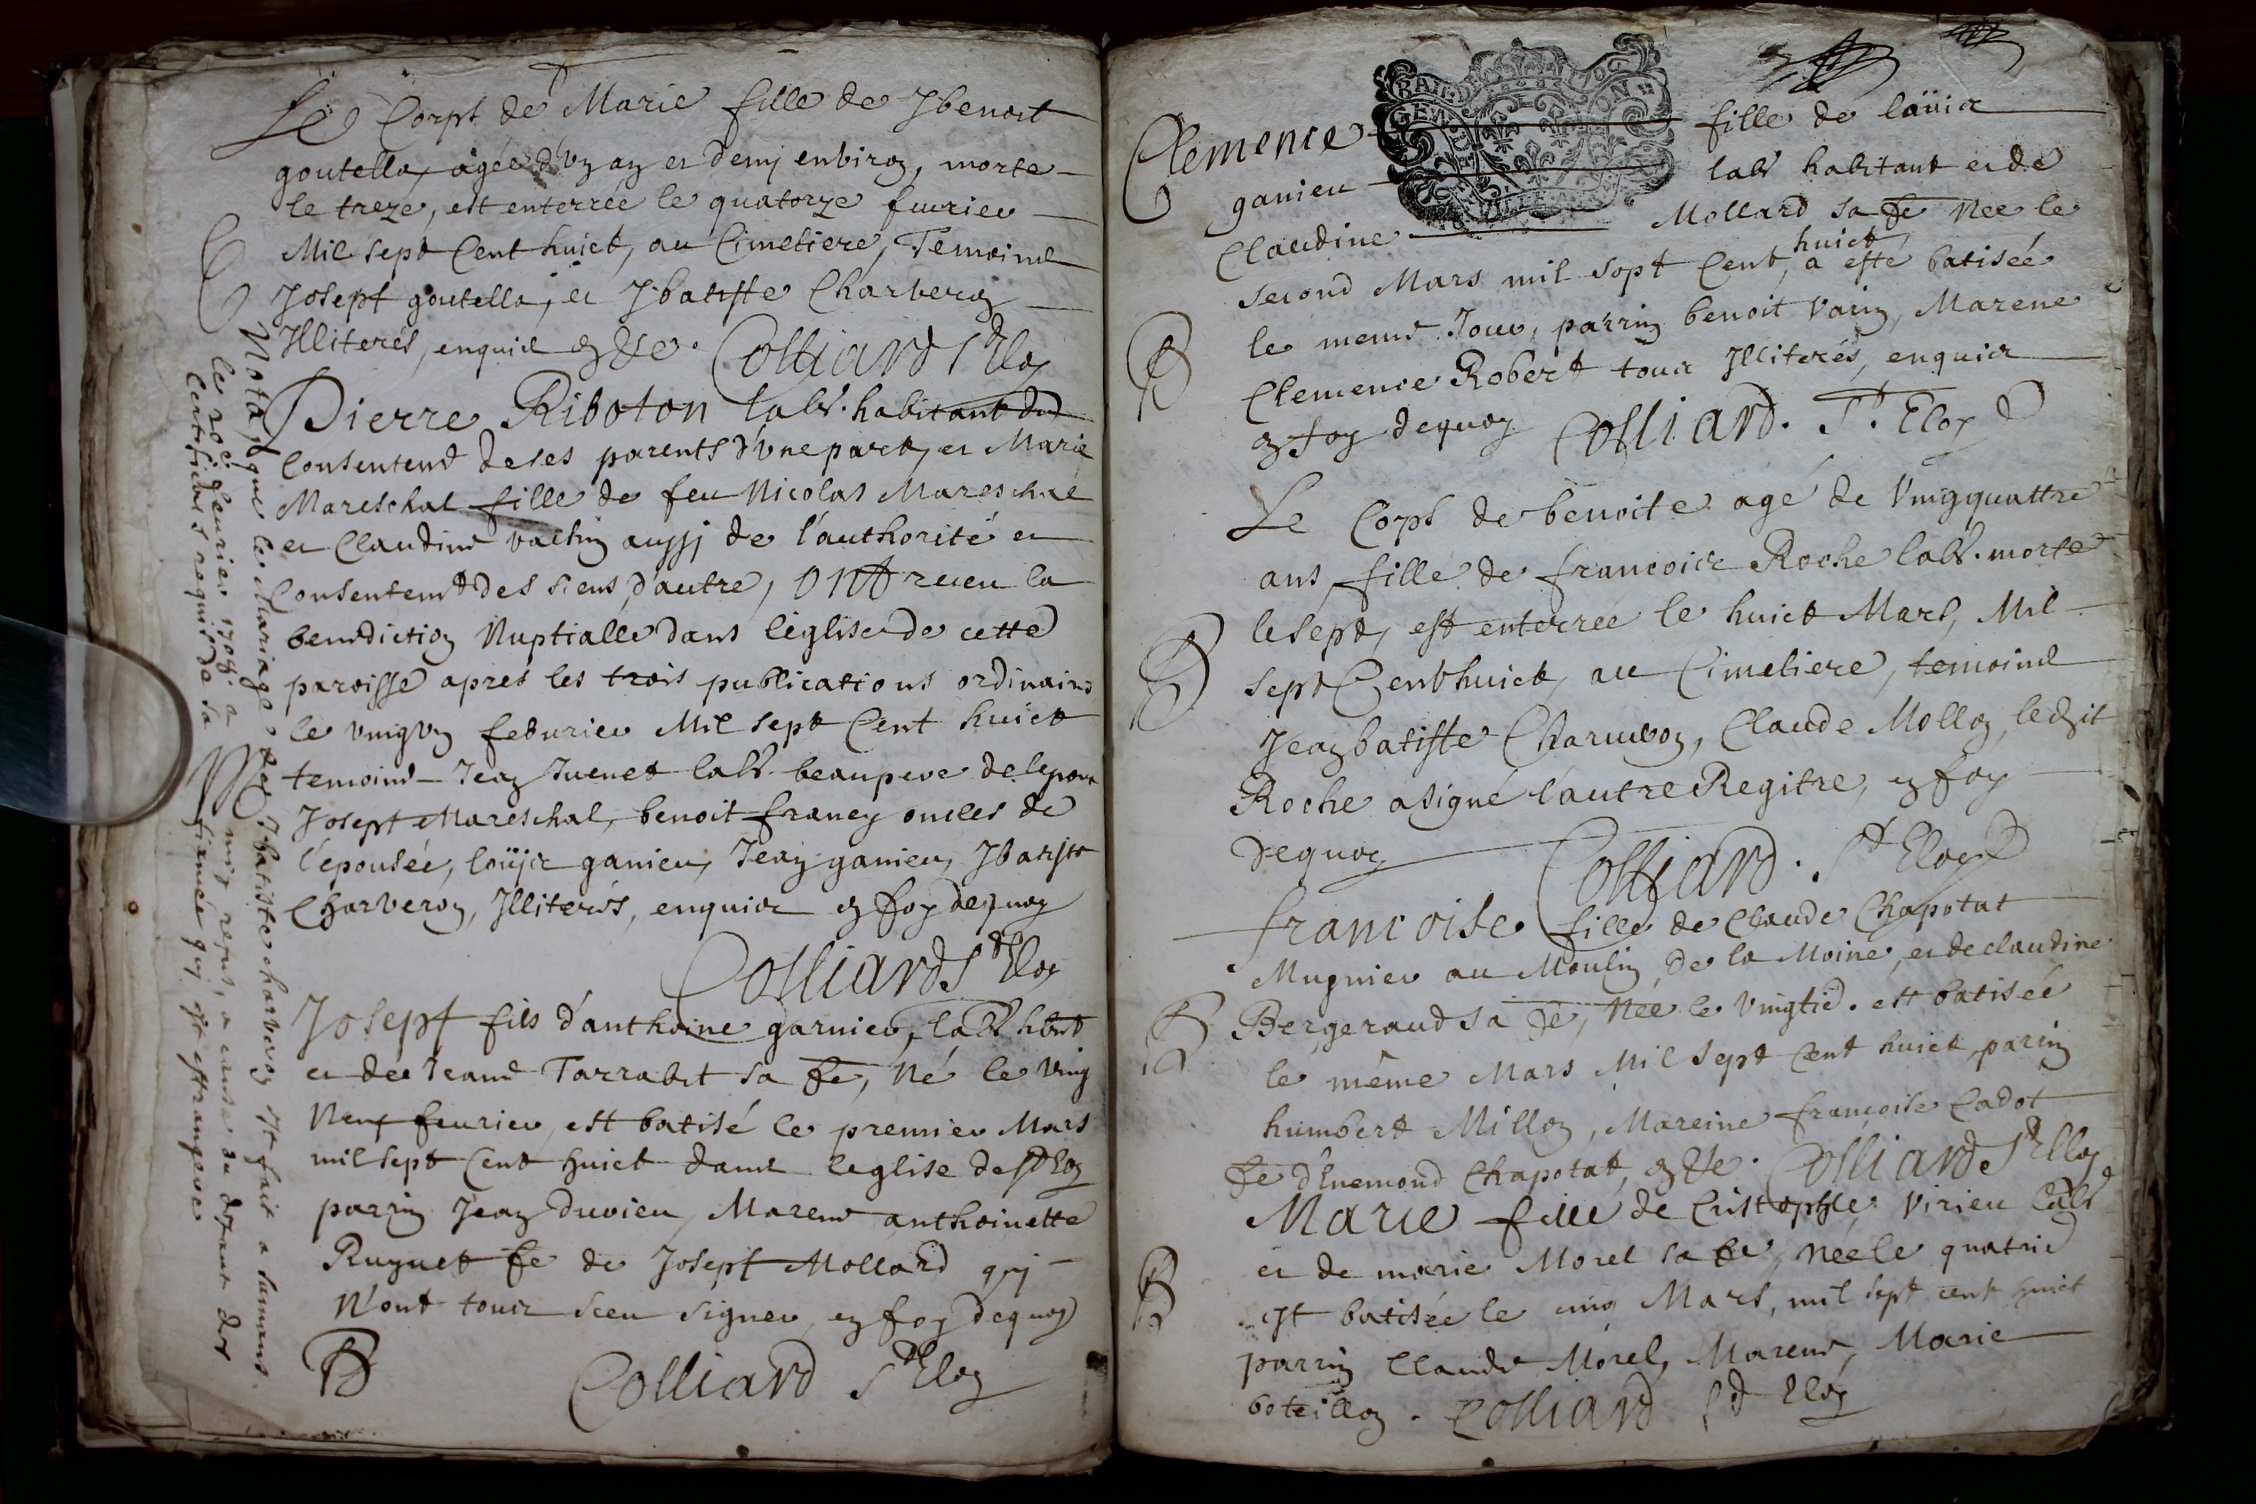 Le Corps de Marie fille de Jbenoit
goutella, agée d'vn an et demj environ, morte
le treze, est enterrée le quatorze feurier
Mil sept Cent huict, au Cimetiere, Temoins
Josept goutella, et Jbatiste Charveron
Illiterés, enquis
Colliard St Eloy
Pierre Riboton labr. habitant du
Consentemt de ses parents d'vne part, et Marie
Mareschal fille de feu Nicolas Mareschal
et Claudine vachin aussj de l'authorité et
Consentemt des siens d'autre, Ont receu la
benediction Nuptialle dans l'eglise de cette
paroisse apres les trois publications ordinaires
le vingvn feburier Mil sept Cent huict
temoins Jean Juenet labr. beaupere de lepoux
Josept Mareschal, benoit francy oncles de
l'épousée, loüis ganieu, Jean ganieu, Jbatiste
Charveron, Illiterés, enquis en foy dequoy
Colliard St Eloy
Josept fils d'anthoine garnier, labr hbnt
et de Jeanne Tarrabit sa fe, Né le ving
Neuf feurier, est batisé le premier Mars
mil sept Cent huict dans leglise de St Eloy
parrin Jean duvieu, Marene anthoinette
Ruynet fe de Josept Mollard qui
N'ont tous sceu signer en foy dequoy
B
Colliard St Eloy
Nota que le Mariage de Jbatiste charveron st fait a
le 20e feurier 1708. a remis, a cause du defaut des
Certificats requis de sa fiancée qui est estrangere
Clemence fille de loüis
ganieu labr habitant et de
Claudine Mollard sa fe Née le
huict
second Mars mil sept Cent, a esté batisée
le meme Jour, parrin benoit vain, Marene
Clemence Robert tous Illiterés, enquis
en foy dequoy Colliard. St. Eloy
Le Corps de benoite agé de vingquattre
ans, fille de francois Roche labr. morte
le sept, est enterrée le huict Mars, Mil
sept Cent huict, au Cimetiere, temoins
Jean batiste Charuvon, Claude Mollon, ledit
Roche a signé l'autre Regitre, en foy
dequoy
Colliard. St Eloy
francoise fille de Claude Chapotat
Mugnier au Moulin de la Moine, et de claudine
B
Bergeraud sa fe, Née le vingtie. est batisée
le même Mars Mil sept Cent huict, parrin
humbert Millon, Mareine francoise Cadot
fe d'Enemond Chapotat, Colliard St Eloy
Marie fille de Cristophle Virieu labr
et de marie Morel sa fe, Née le quatrie
B
est batisée le cinq Mars, mil sept cent huict
parrin Claude Morel, Marene, Marie
boteillon. Colliard St Eloy